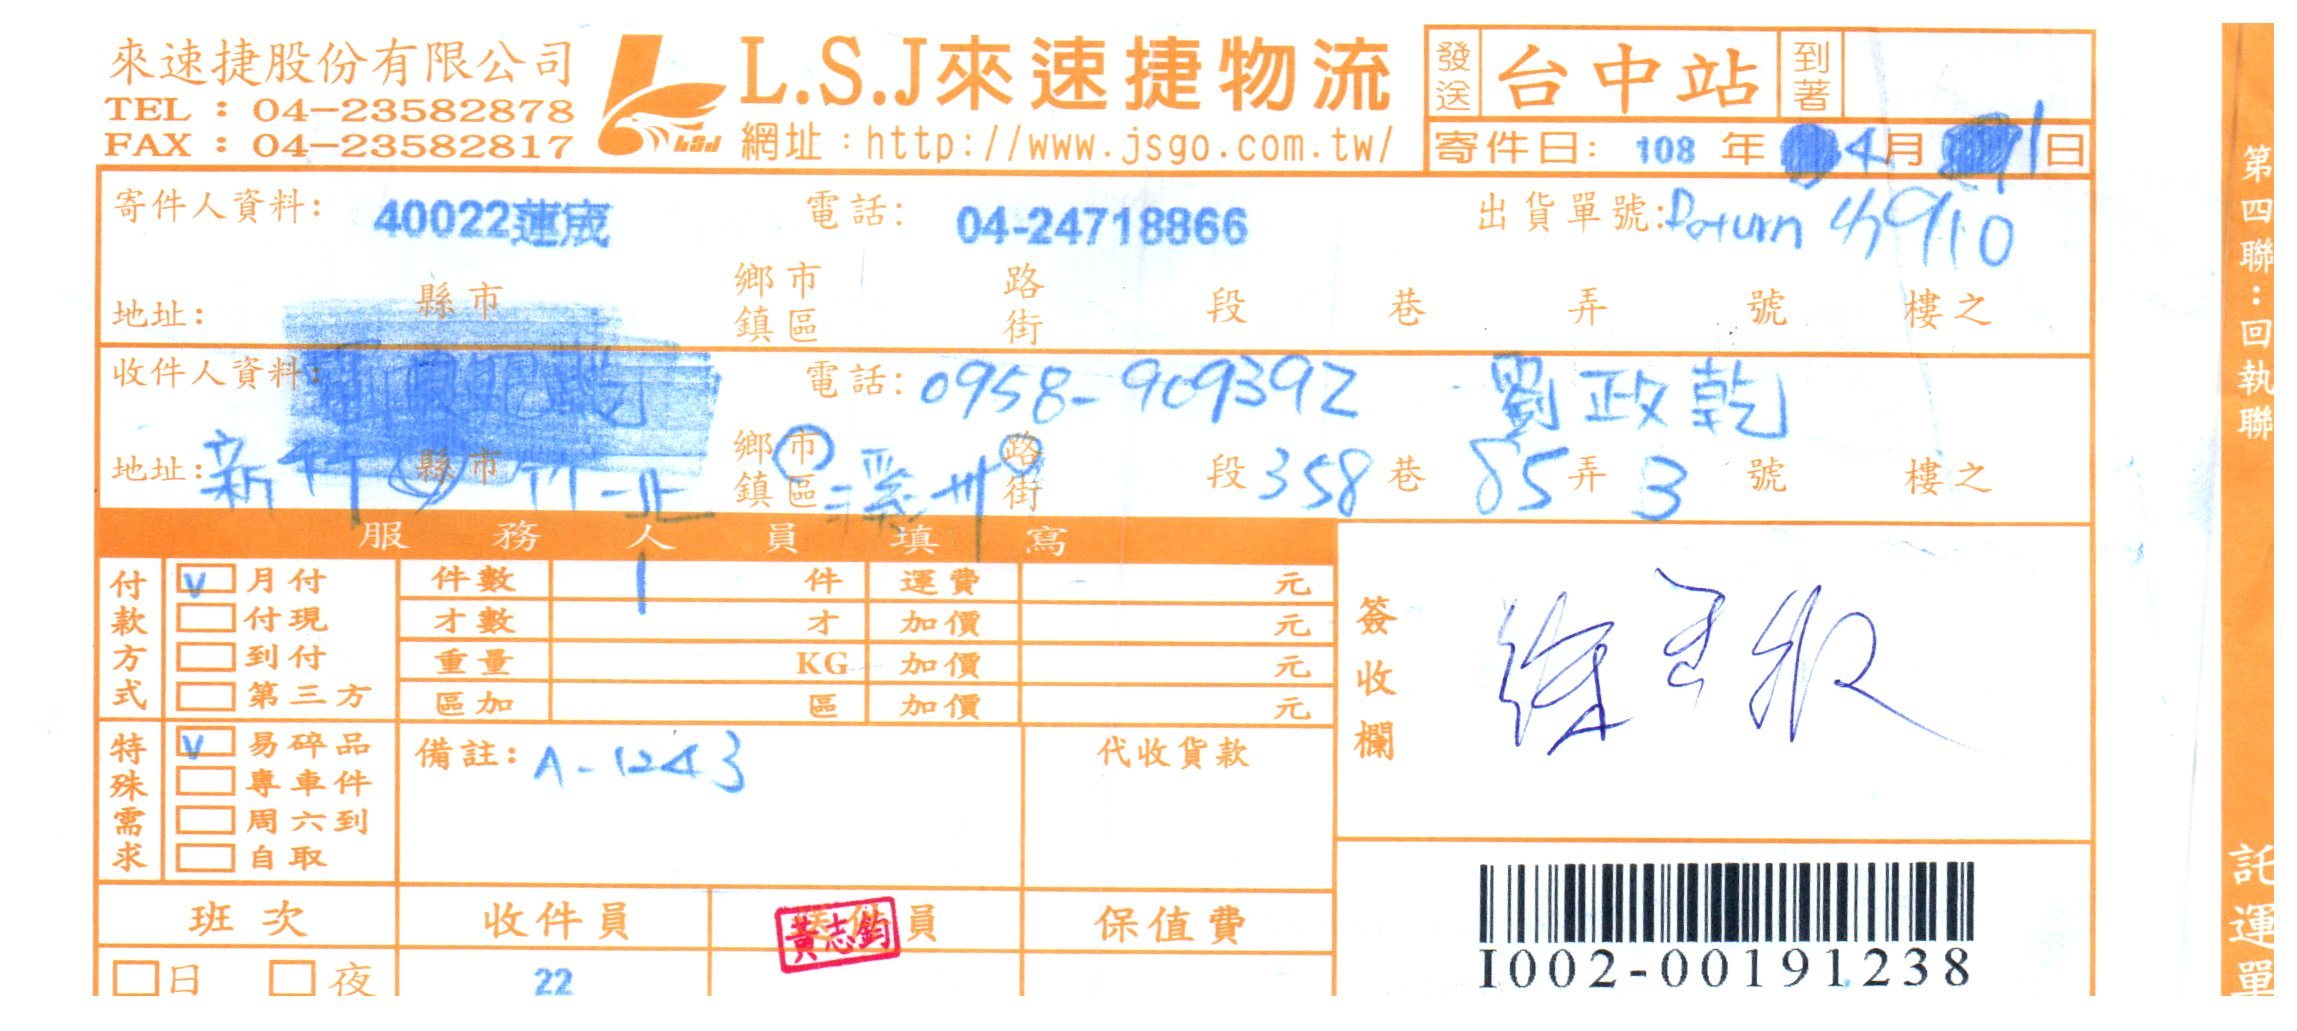 來速捷股份有限公司
TEL：04-23582878
FAX：04-23582817
LSJ
L.S.J來速捷物流
網址：http://www.jsgo.com.tw/
發送 台中站 到著
寄件日: 108 年 4月 1日
寄件人資料: 40022蓮宬 電話: 04-24718866 出貨單號: 910
地址: 縣市 鄉鎮市區 路街 段 巷 弄 號 樓之
收件人資料: 電話: 0958-909392 劉政乾
地址: 新竹 縣市 竹北 鄉鎮市區 溪州 路街 段 358 巷 85 弄 3 號 樓之
服務人員填寫
付款方式 V 月付 件數 1 件 運費 元
付現 才數 才 加價 元
到付 重量 KG 加價 元
第三方 區加 區 加價 元
特殊需求 V 易碎品 備註: A-1243 代收貨款
專車件
周六到
自取
簽收欄 徐
班次 收件員 員 保值費
黃志鈞
日 夜 22
I002-00191238
第四聯：回執聯
託運單